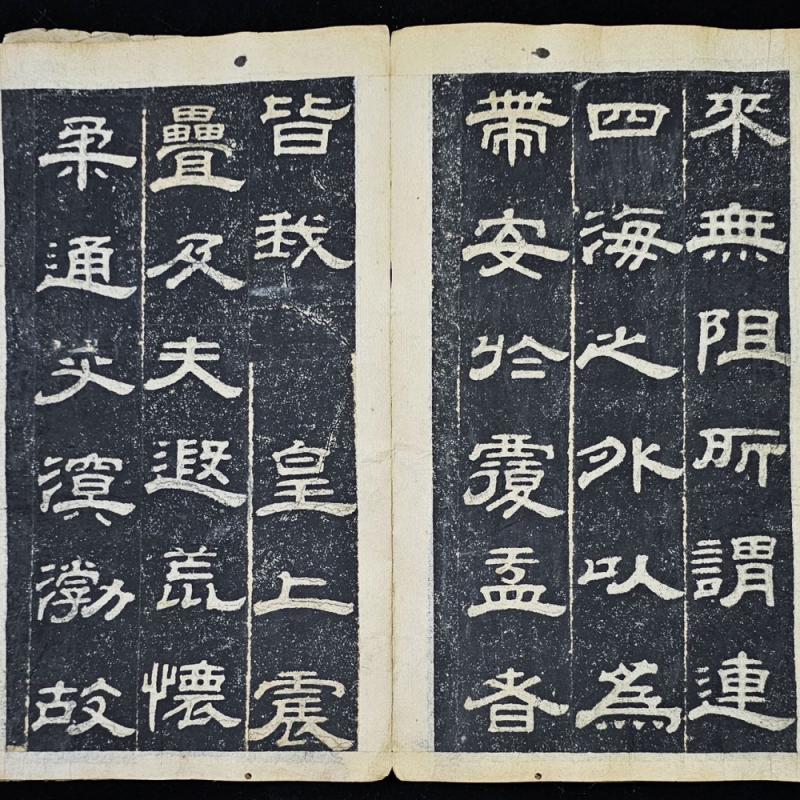 來無阻所謂連
四海之外以為
帶安於覆盂者
皆我 皇上震
疊及夫遐荒懷
柔通溟渤故